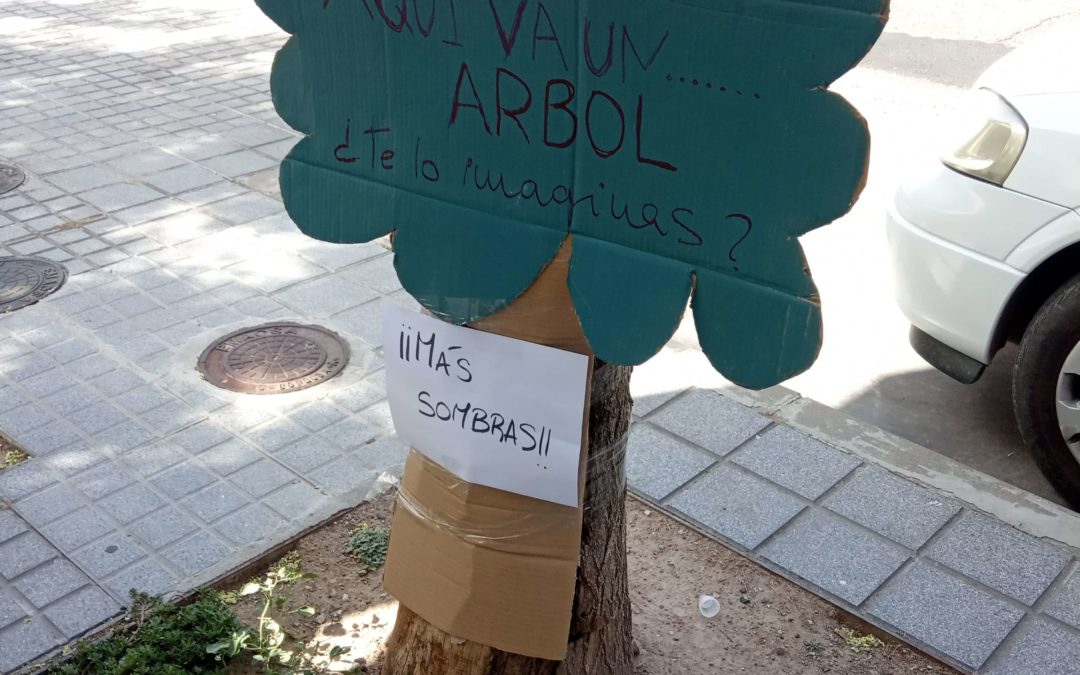 AQUI VA UN.......
ARBOL
¿Te lo imaginas?
¡¡MÁS
SOMBRAS!!